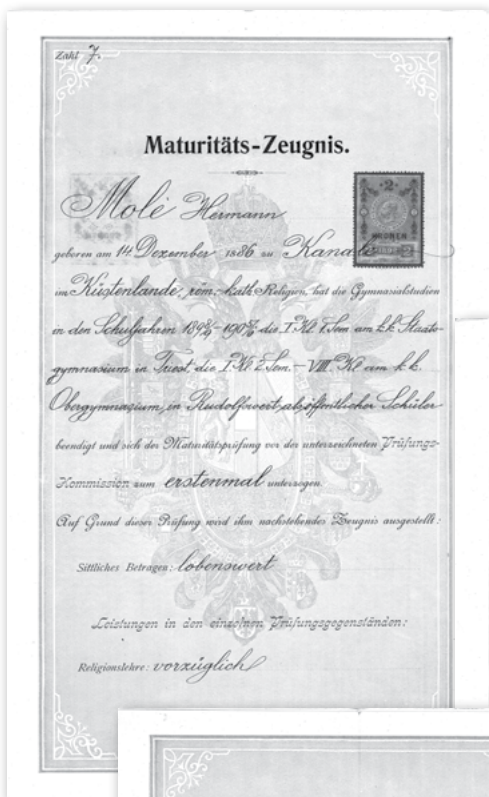 Zahl 7.
Maturitäts-Zeugnis.
Molè Hermann
2
KRONEN
geboren am 14. Dezember 1886 zu Kanale
im Küstenlande, röm.-kath. Religion, hat die Gymnasialstudien
in den Schuljahren die I. Kl. 1. Sem. am k.k. Staats-
gymnasium in Triest, die I. Kl. 2. Sem. – VIII. Kl. am k.k.
Obergymnazium, in Rudolfswert, als öffentlicher Schüler
beendigt und sich der Maturitätsprüfung vor der unterzeichneten Prüfungs-
Kommission zum erstenmal unterzogen.
Auf Grund dieser Prüfung wird ihm nachstehendes Zeugnis ausgestellt:
Sittliches Betragen: lobenswert
Leistungen in den einzelnen Prüfungsgegenständen:
Religionslehre: vorzüglich